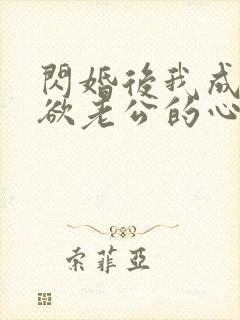 閃婚後我成
欲老公的心
索菲亞